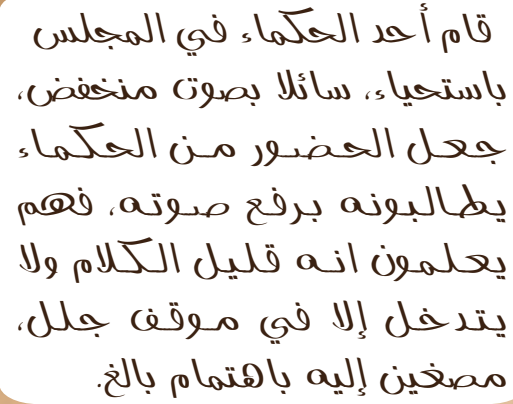 قام أحد الحكماء في المجلس
باستحياء، سائلا بصوت منخفض،
جعل الحضور من الحكماء
يطالبونه برفع صوته، فهم
يعلمون انه قليل الكلام ولا
يتدخل إلا في موقف جلل،
مصغين إليه باهتمام بالغ.